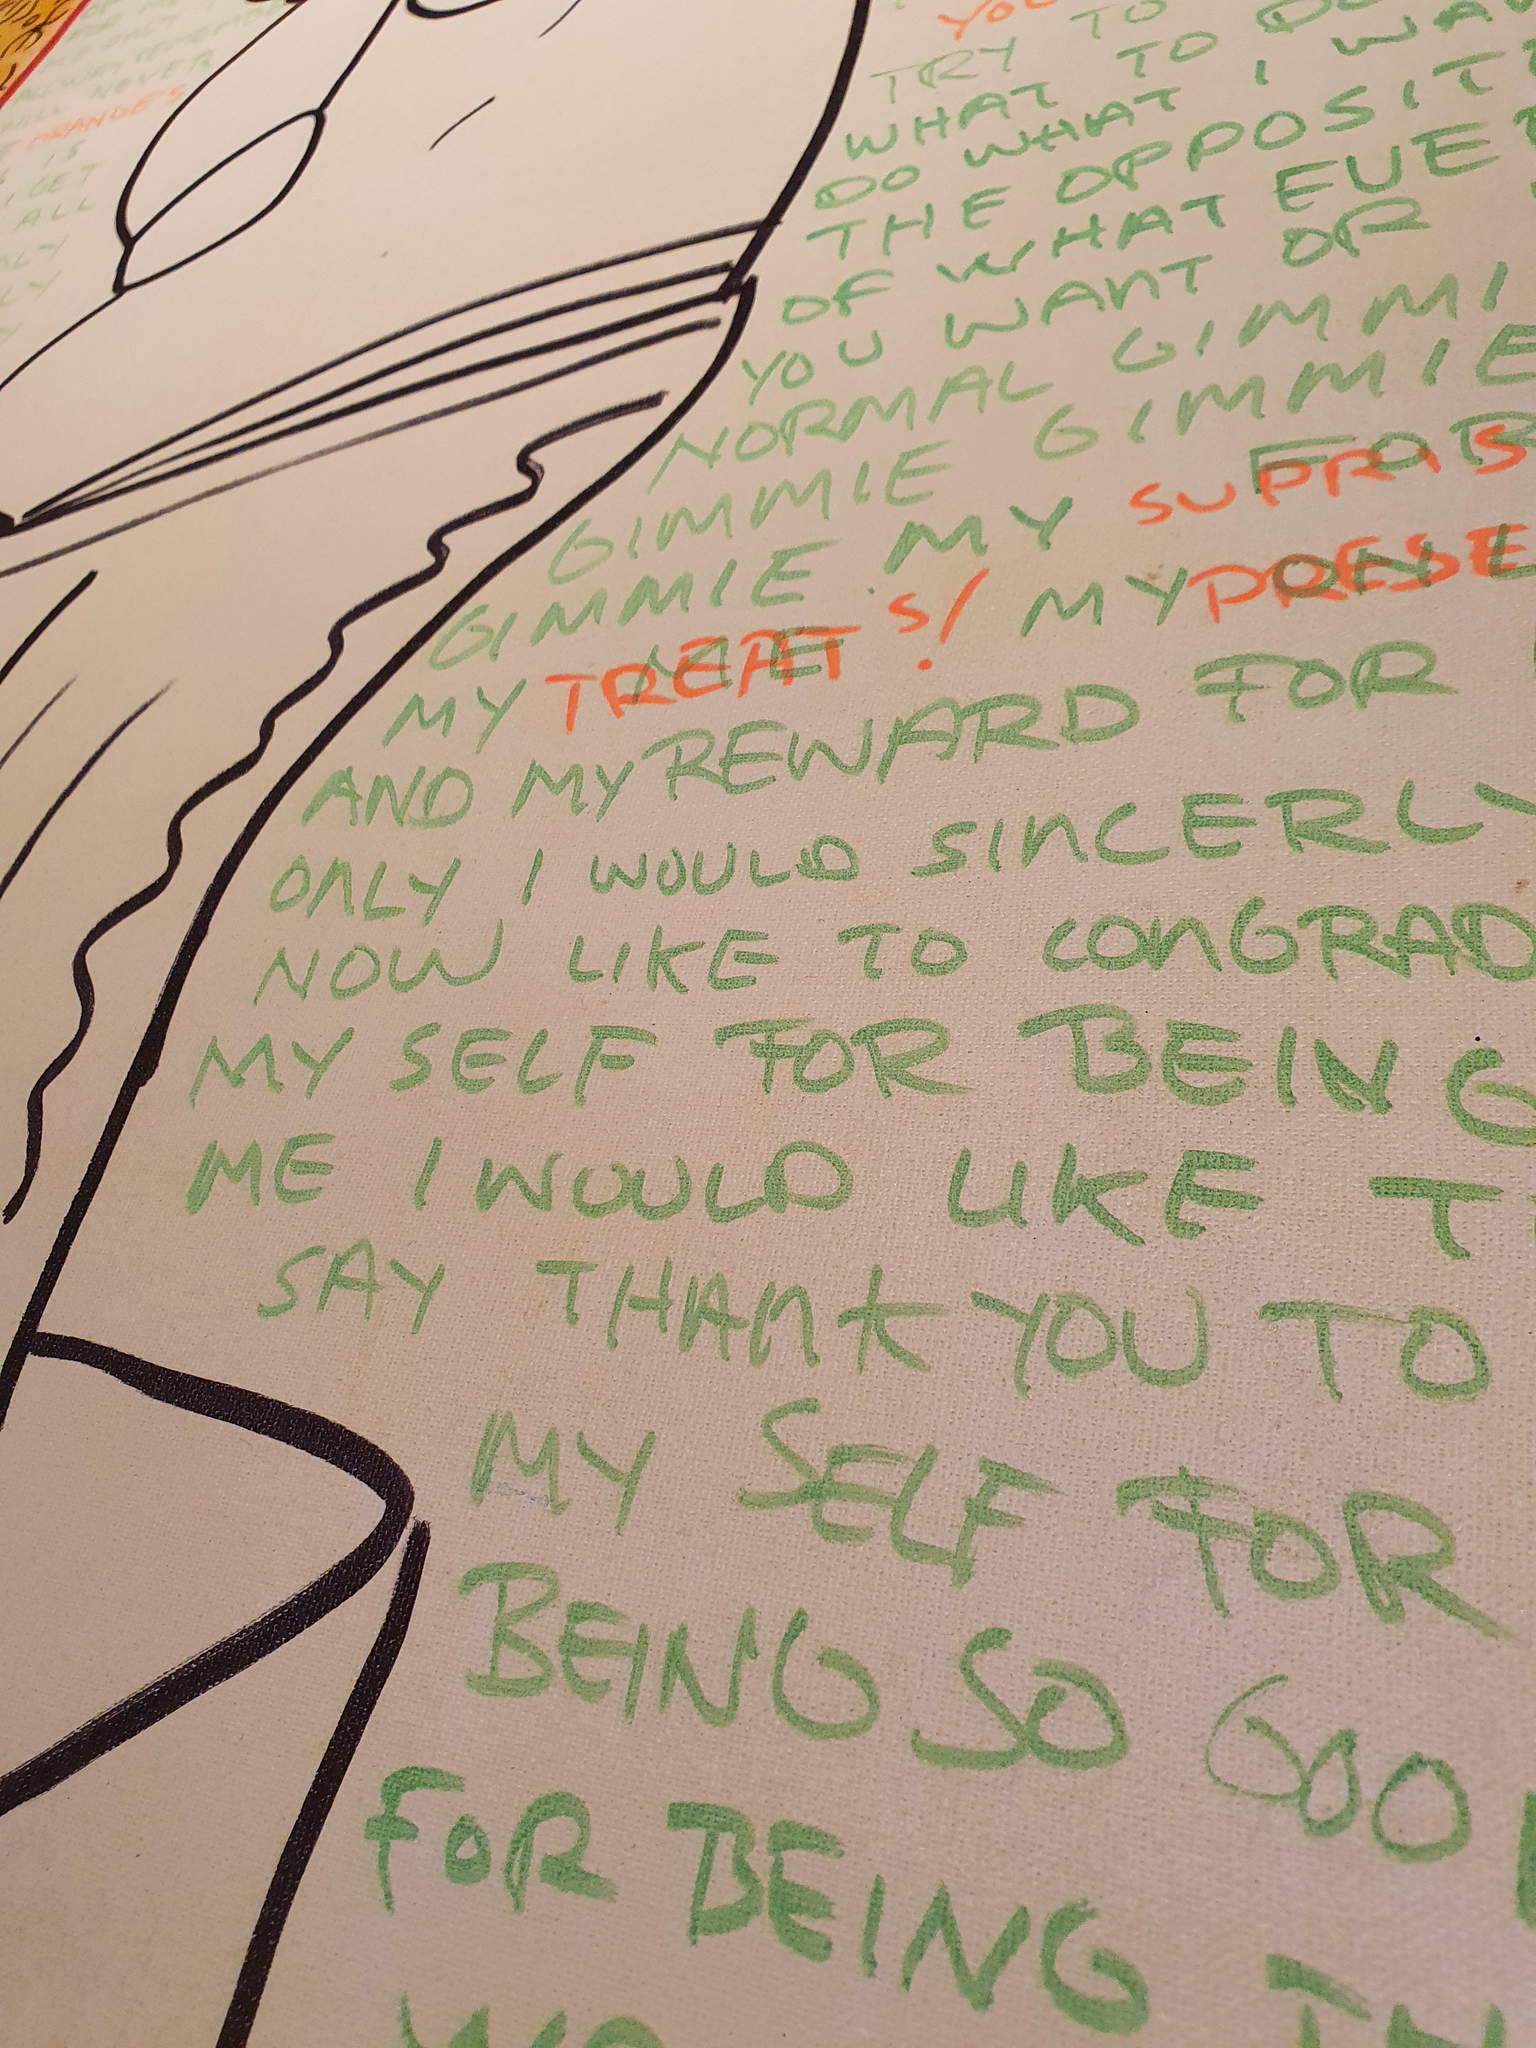 ALL NEVER
ORANGES
IS
I GET
ALL
YOU
TRY TO
WHAT TO DO
DO WHAT I WA
THE OPPOSIT
OF WHAT EVER
YOU WANT OR
NORMAL GIMMI
GIMMIE GIMMIE
GIMMIE MY SUPRIS
MY TREATS! MY PRESE
AND MY REWARD FOR
ONLY I WOULD SINCERLY
NOW LIKE TO CONGRAD
MY SELF FOR BEING
ME I WOULD LIKE T
SAY THANK YOU TO
MY SELF FOR
BEING SO GOO
FOR BEING TH